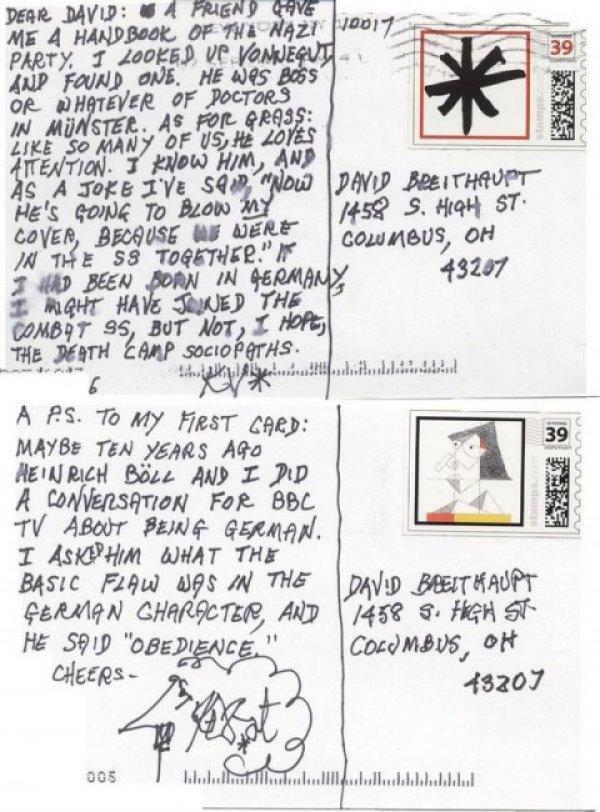 DEAR DAVID: A FRIEND GAVE
ME A HANDBOOK OF THE NAZI
PARTY. I LOOKED UP VONNEGUT
AND FOUND ONE. HE WAS BOSS
OR WHATEVER OF DOCTORS
IN MÜNSTER. AS FOR GRASS:
LIKE SO MANY OF US, HE LOVES
ATTENTION. I KNOW HIM, AND
AS A JOKE I'VE SAID, "NOW
HE'S GOING TO BLOW MY
COVER, BECAUSE WE WERE
IN THE SS TOGETHER." IF
I HAD BEEN BORN IN GERMANY,
I MIGHT HAVE JOINED THE
COMBAT SS, BUT NOT, I HOPE,
THE DEATH CAMP SOCIOPATHS.
KV*
6
10017
39
stamps.com
DAVID BREITHAUPT
1458 S. HIGH ST.
COLUMBUS, OH
43207
A P.S. TO MY FIRST CARD:
MAYBE TEN YEARS AGO
HEINRICH BÖLL AND I DID
A CONVERSATION FOR BBC
TV ABOUT BEING GERMAN.
I ASKED HIM WHAT THE
BASIC FLAW WAS IN THE
GERMAN CHARACTER, AND
HE SAID "OBEDIENCE."
CHEERS-
005
39
stamps.com
DAVID BREITHAUPT
1458 S. HIGH ST
COLUMBUS, OH
43207